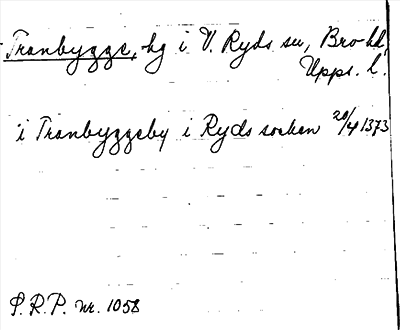 Tranbygge, hg i V. Ryds sn, Bro hd,
Upps. l.
i Tranbyggeby i Ryds socken 20/4 1373
S.R.P. nr. 1058